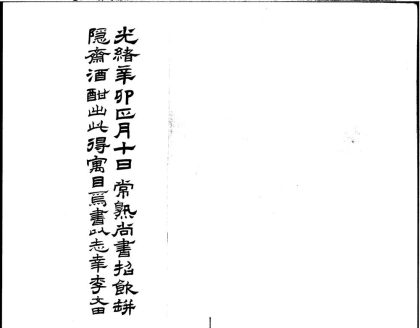 光緒辛卯正月十日常熟尚書招飲缾
隱齋酒酣出此得寓目焉書以志幸李文田